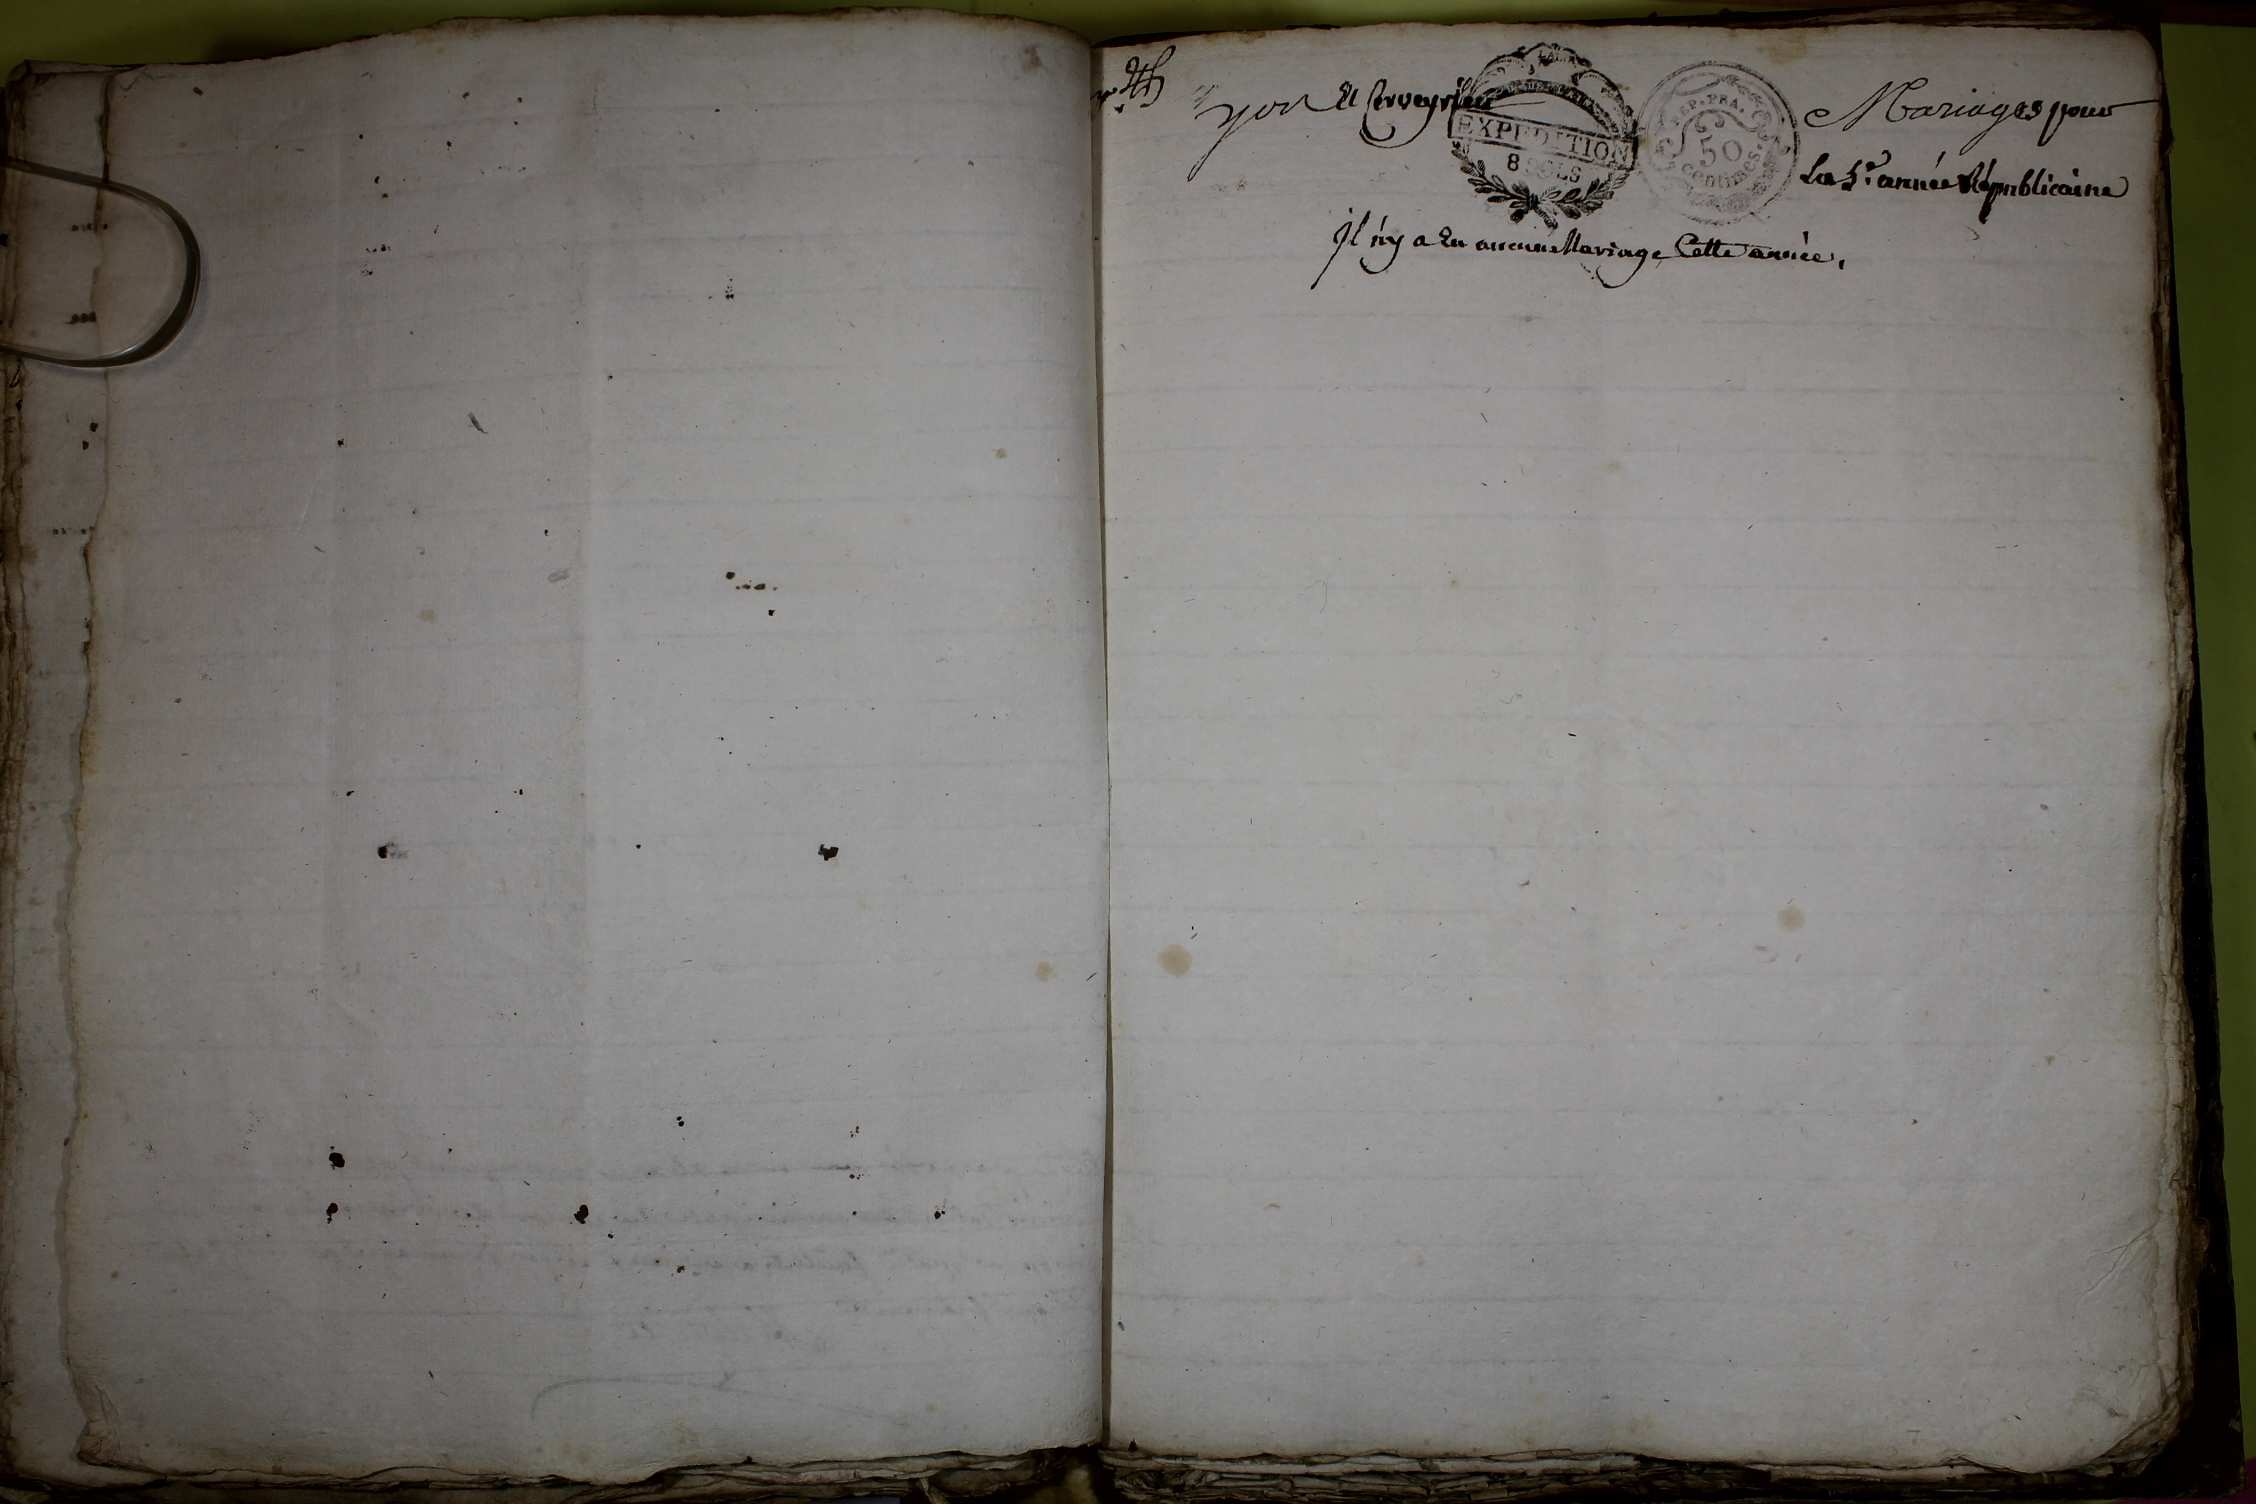 yon Et Cerveyrieu
EXPEDITION
8 SOLS
REP. FRA.
50
centimes.
Mariages pour
La 5.e année Républicaine
Il n'y a Eu aucun Mariage Cette année.